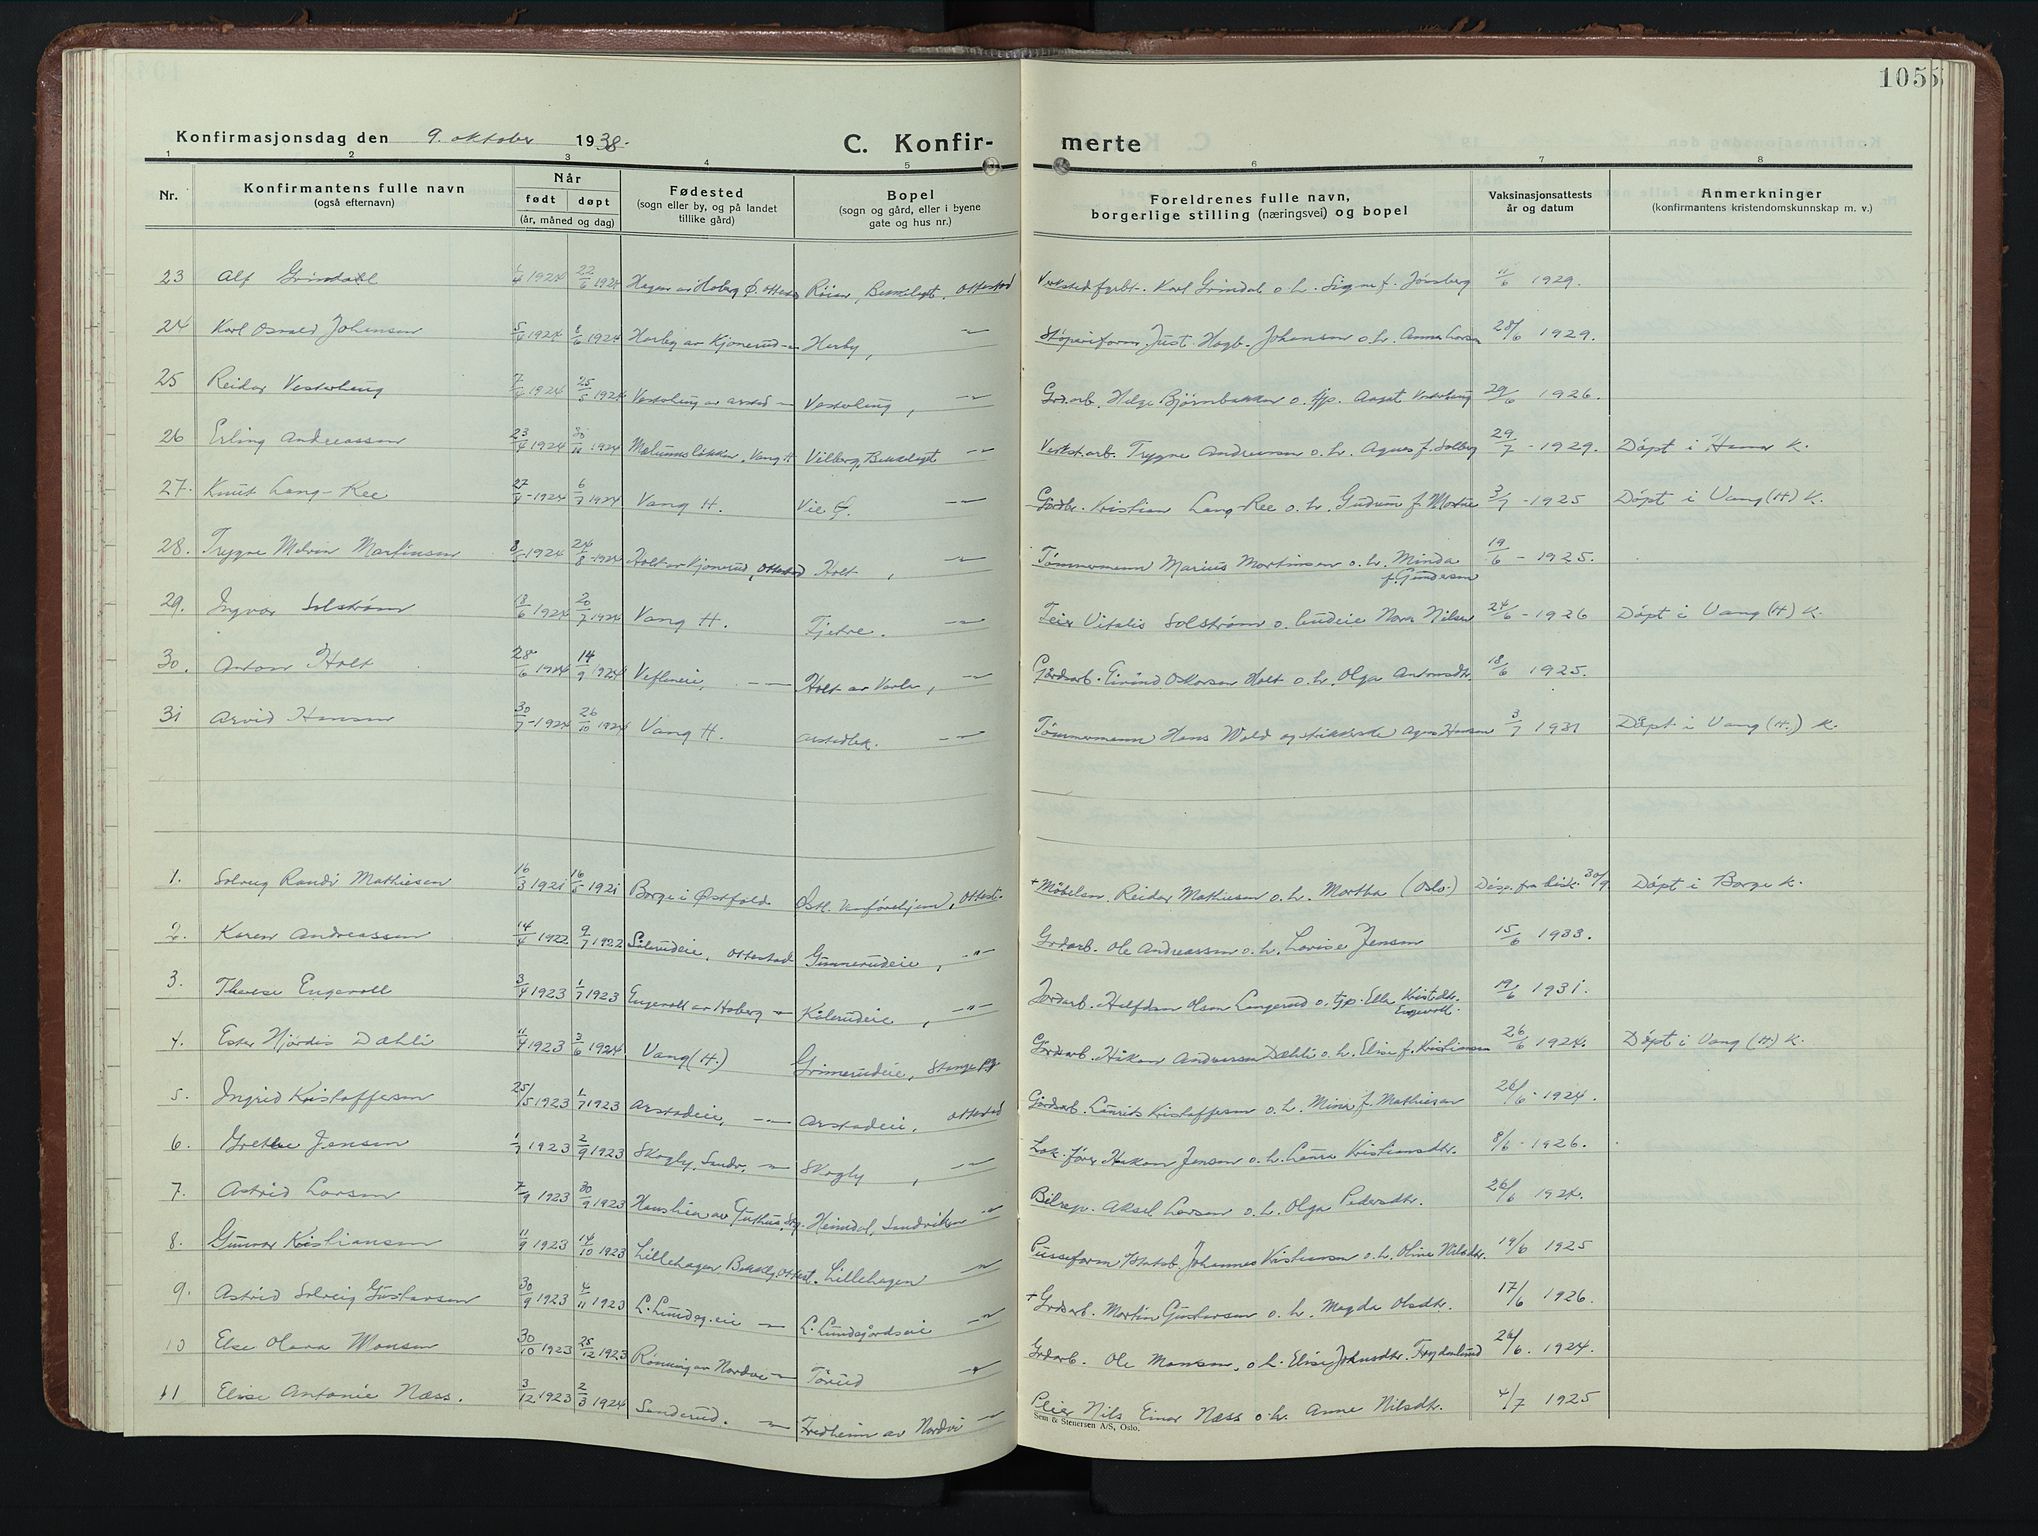 1055
Konfirmasjonsdag den 9. oktober 1938.
C. Konfir- merte
1 2 3 4 5 6 7 8
Nr.
Konfirmantens fulle navn
(også efternavn)
Når
født døpt
(år, måned og dag)
Fødested
(sogn eller by, og på landet
tillike gård)
Bopel
(sogn og gård, eller i byene
gate og hus nr.)
Foreldrenes fulle navn,
borgerlige stilling (næringsvei) og bopel
Vaksinasjonsattests
år og datum
Anmerkninger
(konfirmantens kristendomskunnskap m. v.)
23 Alf Grindahl 1/4 1924 22/6 1924 Hagen av Hoberg Ø. Ottestad Røien, Bekkelaget, Ottestad Karl Grindal o. h. Signe f. Jønsberg 11/6 1929.
24 Karl Osvald Johansen 5/4 1924 8/6 1924 Horby av Kjonerud -"- Horby, -"- Støperiform. Just. Hagb. Johansen o. h. Anna Larsen 28/6 1929.
25 Reidar Vesterhaug 7/4 1924 25/5 1924 Vesterhaug av Arstad -"- Vesterhaug, -"- Grdarb. Helge Bjørnbakken o. Tjp. Aagot Vesterhaug 29/6 1926.
26 Erling Andreassen 23/4 1924 Mælumsløkken, Vang H Vilberg, Bekkelaget -"- Verkst.arb. Trygve Andreassen o. h. Agnes f. Solberg 29/7 - 1929. Døpt i Hamar K.
27. Knut Lang-Ree 27/4 - 1924 6/7 1924 Vang H. Vie -"- Gårdbr. Kristian Lang-Ree o. h. Gudrun f. 3/7 - 1925 Døpt i Vang (H) K.
28. Trygve Melvin Martinsen 8/5 - 1924 24/8 - 1924 Holt av Kjonerud, Ottestad Holt, -"- Tømmermann Marius Martinsen o. h. Minda
f. Gundersen 19/6 - 1925.
29. Ingvar Solstrøm 18/6 1924 20/7 1924 Vang H. Tjetre. -"- Vitalis Solstrøm o. Nora Nilsen 24/6 - 1926 Døpt i Vang (H) K.
30. Anton Holt 28/6 1924 14/9 1924 -"- Holt av Varle, -"- Gårdsarb. Eivind Oskarsen Holt o. h. Olga Antonsdtr. 18/6 1925.
31 Arvid Hansen 30/7 - 1924 26/10 1924 Vang H. Arstadlek. -"- Tømmermann Hans Wold og Agnes Hansen 3/7 1931 Døpt i Vang (H.) K.
1. Solveig Randi Mathiesen 16/3 1921 16/5 1921 Borge i Østfold Østl. Vanførehjem, Ottest. + Reidar Mathiesen o. h. Martha (Oslo.) Disp. fra bisk. 30/9 Døpt i Borge K.
2. Karen Andreassen 14/4 1922 9/7 1922 Ottestad Gunnerudeie, -"- Grdarb. Ole Andreassen o. h. Lovise Jensen 15/6 1933.
3. Therese Engevoll 3/4 1923 1/7 1923 Engevoll av Hoberg -"- -"- Jordarb. Halfdan Olsen Langerud o. Tjp. Ella Kristdtr.
Engevoll. 19/6 1931.
4. Ester Hjørdis Dæhli 11/4 1923 3/6 1924 Vang (H.) Grimerudeie, Stange Gårdsarb. Håkon Andersen Dæhli o. h. Elise f. Kristiansen 26/6 1924. Døpt i Vang (H) K.
5. Ingrid Kristoffersen 25/5 1923 1/7 1923 Arstadeie, -"- Arstadeie, Ottestad Gårdsarb. Laurits Kristoffersen o. h. Mina f. Mathiesen 26/6 - 1924.
6. Grethe Jensen 1/7 1923 2/9 1923 Skogly, Sandv. -"- Skogly, -"- Lok. fører Håkon Jensen o. h. Laura Kristiansdtr. 8/6 - 1926.
7. Astrid Larsen 7/9 1923 30/9 1923 Heimdal, Sandviken -"- Bilrep. Aksel Larsen o. h. Olga Pedersdtr. 26/6 1924.
8. Gunvor Kristiansen 11/9 1923 14/10 1923 Lillehagen, Bekkelg. Ottest. Lillehagen -"- Pusseform. v/Statsb. Johannes Kristiansen o. h. Oline Nilsdtr. 19/6 1925
9. Astrid Solveig Gustavsen 30/9 1923 4/11 1923 L. Lundgj.eie -"- L. Lundgjordseie -"- + Grdsarb. Martin Gustavsen o. h. Magda Olsdtr. 17/6 1926.
10 Else Olava Monsen 30/10 1923 25/12 1923 Rønning av Nordvi -"- Torud -"- Grdarb. Ole Monsen, o. h. Elise Johnsdtr. Frydenlund 26/6. 1924.
11 Elise Antonie Næss. 3/12 1923 2/3 1924 Sanderud. -"- Fredheim av Nordvi -"- Pleier Nils Einar Næss o. h. Anne Nilsdtr. 4/7 1925
Sem & Stenersen A/S, Oslo.